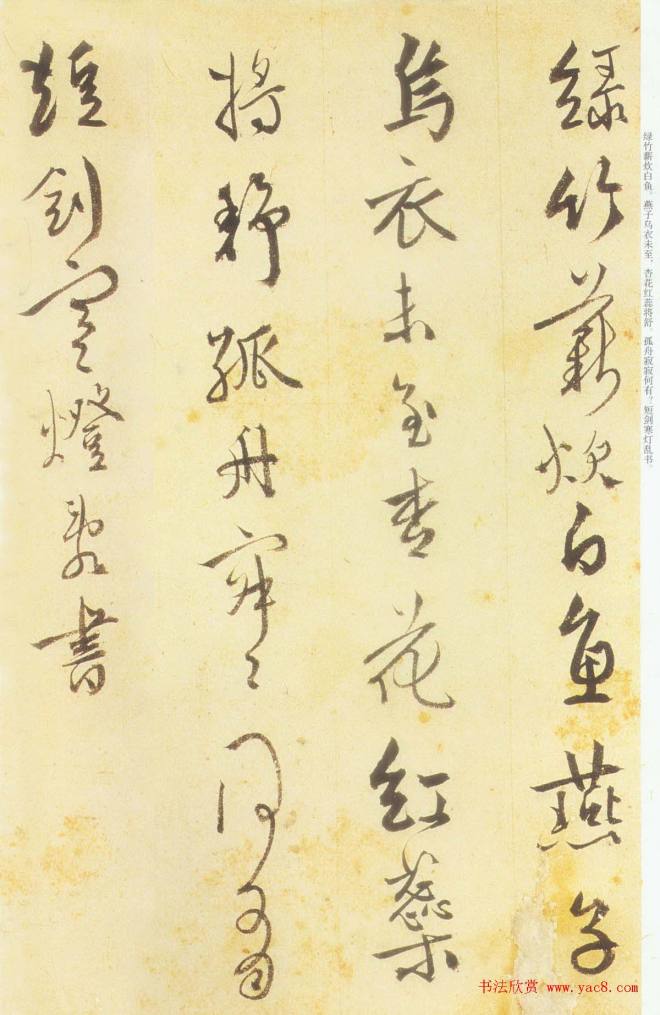 綠竹薪炊白魚燕子
烏衣未至杏花紅蘂
將舒孤舟寂〻何有
短劍寒燈亂書
绿竹薪炊白鱼,燕子乌衣未至,杏花红蕊将舒,孤舟寂寂何有?短剑寒灯乱书。
书法欣赏 www.yac8.com